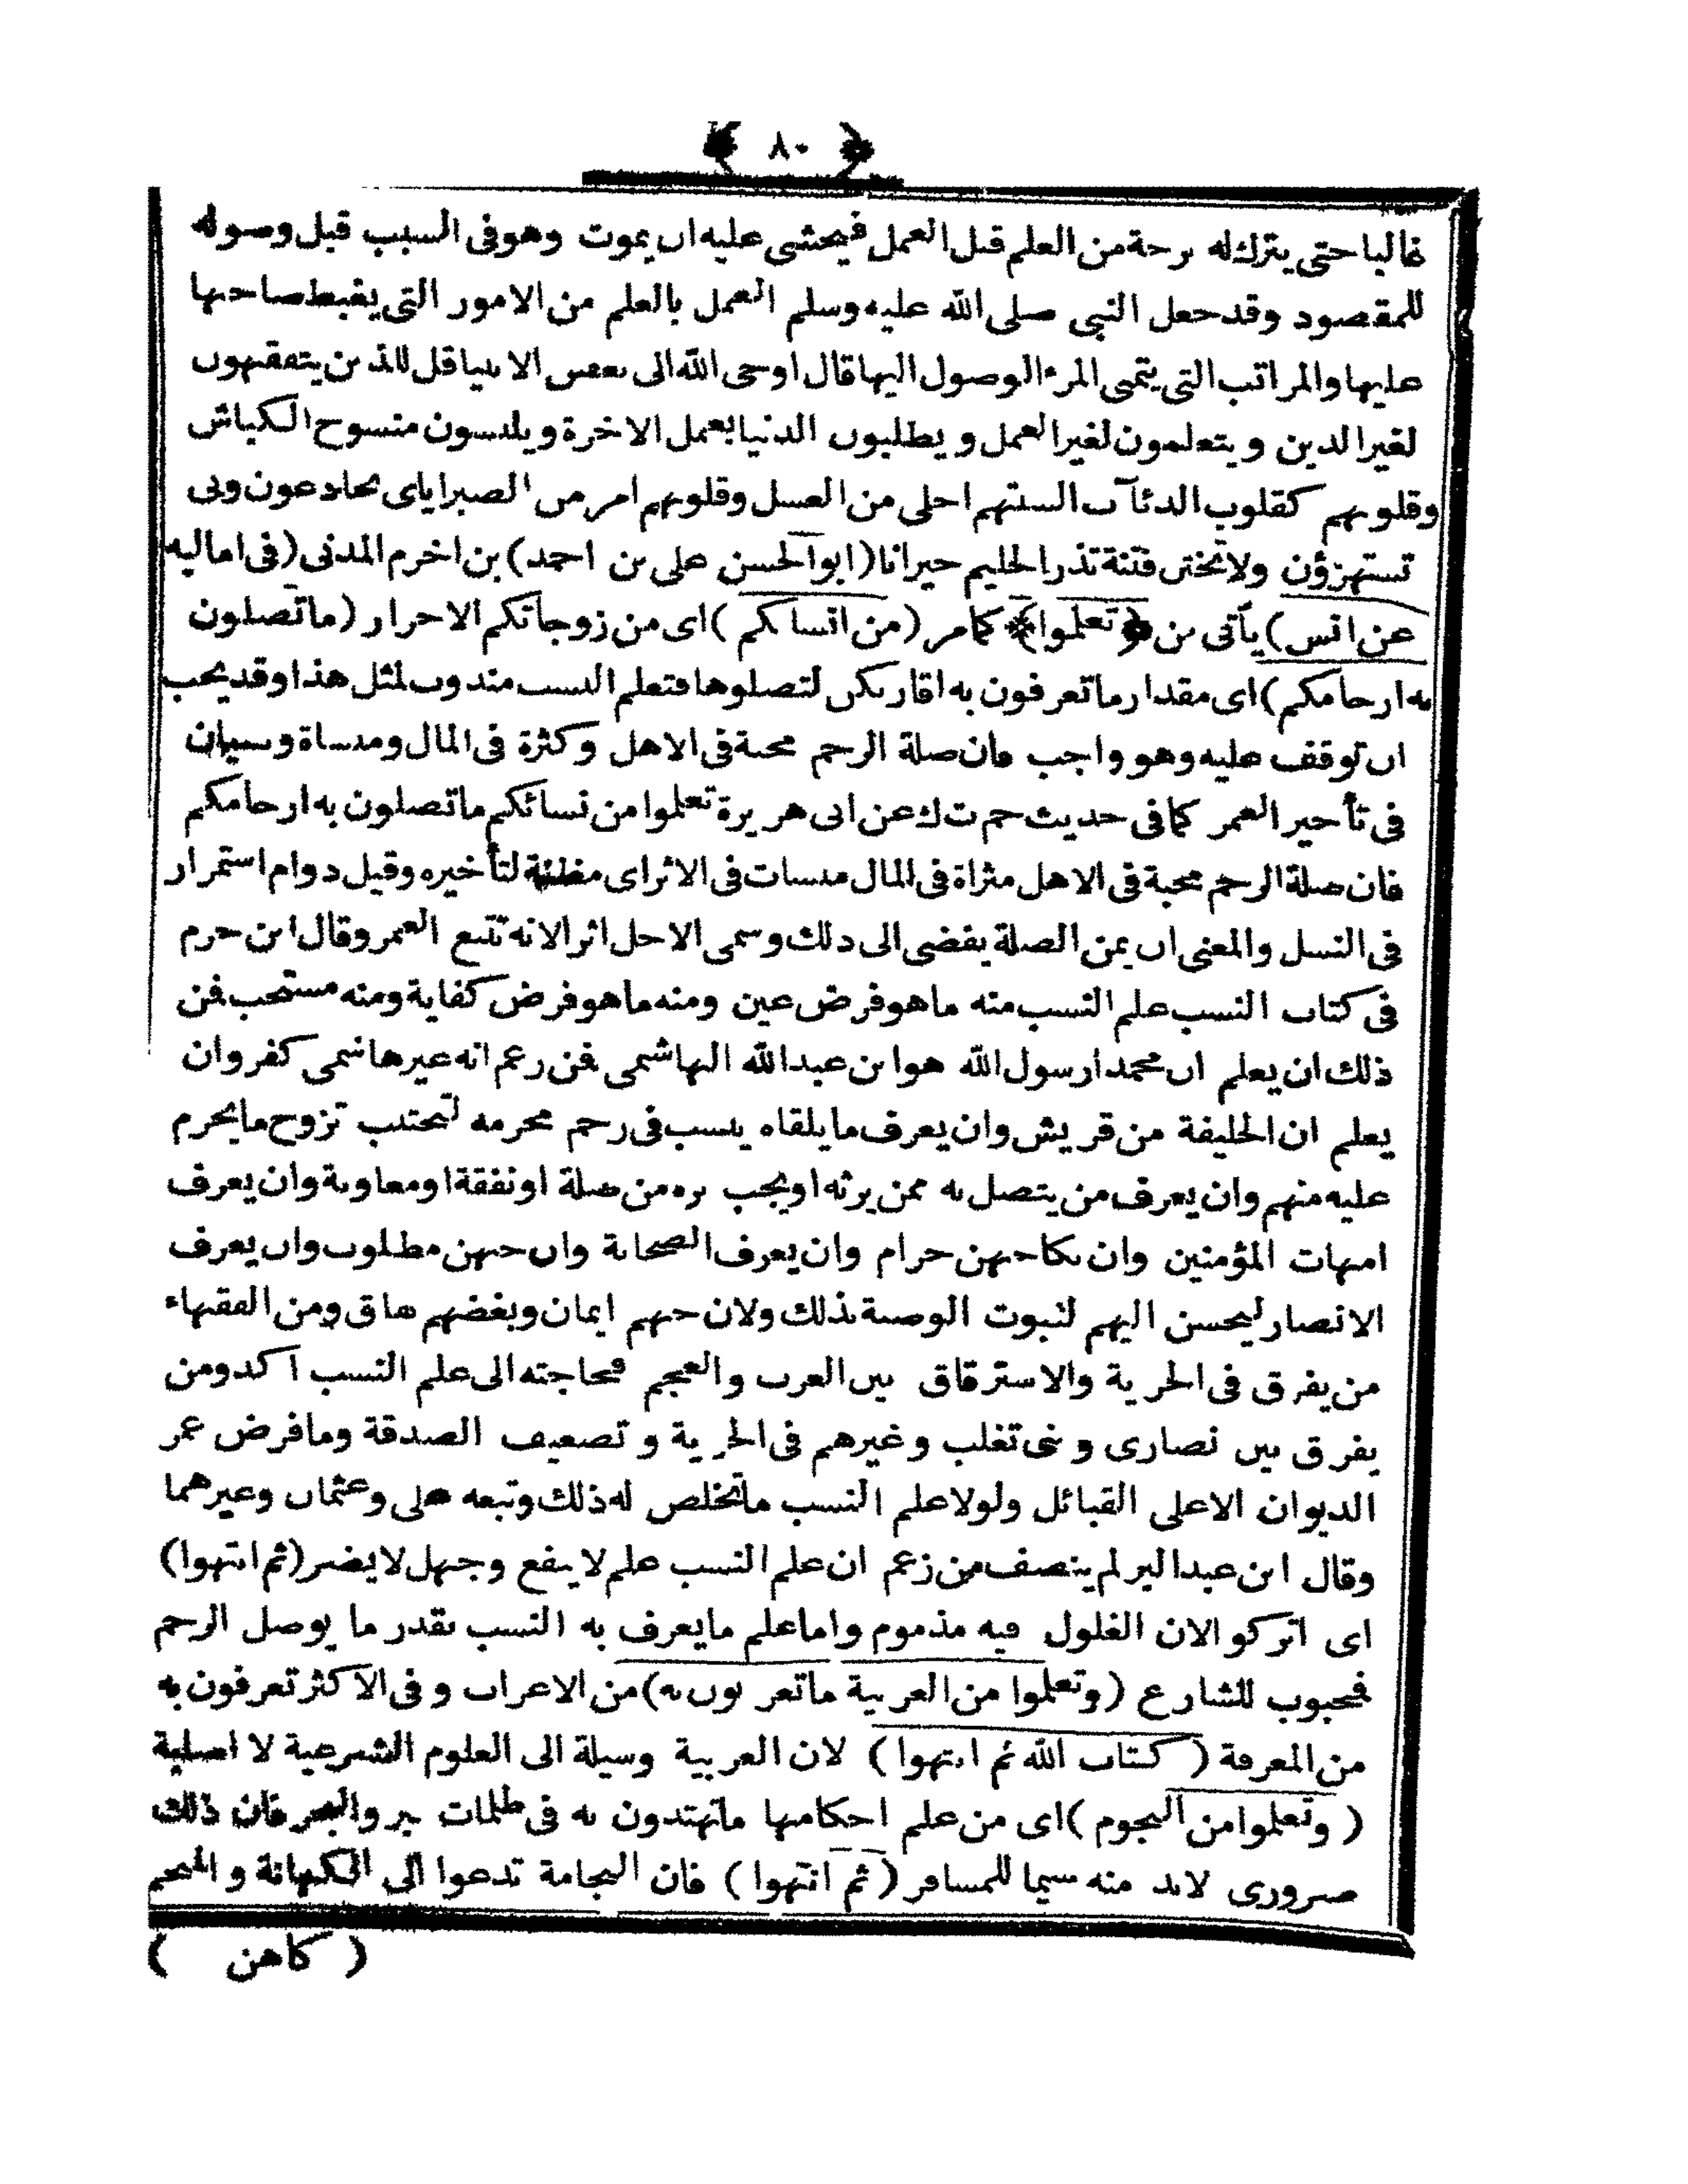 ﴿ ٨٠ ﴾
غالبا حتى يترك له برحة من العلم قبل العمل فيخشى عليه ان يموت وهو فى السبب قبل وصوله
للمقصود وقد جعل النبى صلى الله عليه وسلم العمل بالعلم من الامور التى يغبط صاحبها
عليها والمراتب التى يتمى المرء الوصول اليها قال اوحى الله الى بعض الانبيا قل للذين يتفقهون
لغير الدين ويتعلمون لغير العمل ويطلبون الدنيا بعمل الاخرة ويلبسون منسوح الكباش
وقلوبهم كقلوب الدئآب السنتهم احلى من العسل وقلوبهم امر من الصبر اياى يخادعون وبى
تستهزؤن ولا تختر فتنة تذر الحليم حيرانا (ابو الحسن على بن احمد) بن اخرم المدنى (فى اماليه
عن انس) يأتى بن ﴿تعلموا﴾ كمامر (من انسابكم) اى من زوجاتكم الاحرار (ما تصلون
به ارحامكم) اى مقدار ما تعرفون به اقاربكم لتصلوها فتعلم النسب مندوب لمثل هذا وقد يجب
ان توقف عليه وهو واجب فان صلة الرحم محبة فى الاهل وكثرة فى المال ومنساة ونسيان
فى تأخير العمر كما فى حديث حم ت ك عن ابى هريرة تعلموا من نسائكم ما تصلون به ارحامكم
فان صلة الرحم محبة فى الاهل مثراة فى المال منسات فى الاثر اى مظنة لتأخيره وقيل دوام استمرار
فى النسل والمعنى ان يمن الصلة يفضى الى ذلك وسمى الاجل اثر الانه تتبع العمر وقال ابن حزم
فى كتاب النسب علم النسب منه ما هو فرض عين ومنه ما هو فرض كفاية ومنه مستحب فمن
ذلك ان يعلم ان محمدا رسول الله هو ابن عبد الله الهاشمى فمن زعم انه غير هاشمى كفر وان
يعلم ان الخليفة من قريش وان يعرف ما يلقاه ينسب فى رحم محرمه لتجتنب تزوج ما يحرم
عليه منهم وان يعرف من يتصل به ممن يرثه او يجب بره من صلة او نفقة او معاونة وان يعرف
امهات المؤمنين وان نكاحهن حرام وان يعرف الصحابة وان حبهن مطلوب وان يعرف
الانصار ليحسن اليهم لثبوت الوصية بذلك ولان حبهم ايمان وبغضهم نفاق ومن الفقهاء
من يفرق فى الحرية والاسترقاق بين العرب والعجم فحاجته الى علم النسب آكد ومن
يفرق بين نصارى و بنى تغلب وغيرهم فى الجزية و تضعيف الصدقة وما فرض عمر
الديوان الا على القبائل ولولا علم النسب ما تخلص له ذلك وتبعه على وعثمان وغيرهما
وقال ابن عبد البر لم ينصف من زعم ان علم النسب علم لا ينفع وجهل لا يضر (ثم انتهوا)
اى اتركو الان الغلول فيه مذموم واما علم ما يعرف به النسب بقدر ما يوصل الرحم
فمحبوب للشارع (وتعلموا من العربية ما تعربون به) من الاعراب و فى الاكثر تعرفون به
من المعرفة (كتاب الله ثم انتهوا) لان العربية وسيلة الى العلوم الشرعية لا اصلية
(وتعلموا من النجوم) اى من علم احكامها ما تهتدون به فى ظلمات بر والبحر فان ذلك
ضرورى لابد منه سيما للمسافر (ثم انتهوا) فان النجامة تدعوا الى الكهانة والمنجم
(كاهن)